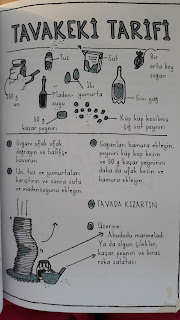 TAVAKEKİ TARİFİ
Tuz
Süt
Bir
orta boy
soğan
150 g
un
Maden-
suyu
İki
yumurta
Sıvı yağ
80 g
kaşar peyniri
Küp küp kesilmiş
çiğ süt peyniri
Soğanı ufak ufak
doğrayın ve hafifçe
kavurun.
Un, tuz ve yumurtaları
karıştırın ve sonra sütü
ve madensuyunu ekleyin.
Soğanları hamura ekleyin,
peyniri küp küp kesin
ve 80 g kaşar peynirini
daha da ufak kesin ve
hamura ekleyin.
TAVADA KIZARTIN
Üzerine:
Ahududu marmeladı
Ya da olgun çilekler,
kaşar peyniri ve biraz
roka salatası